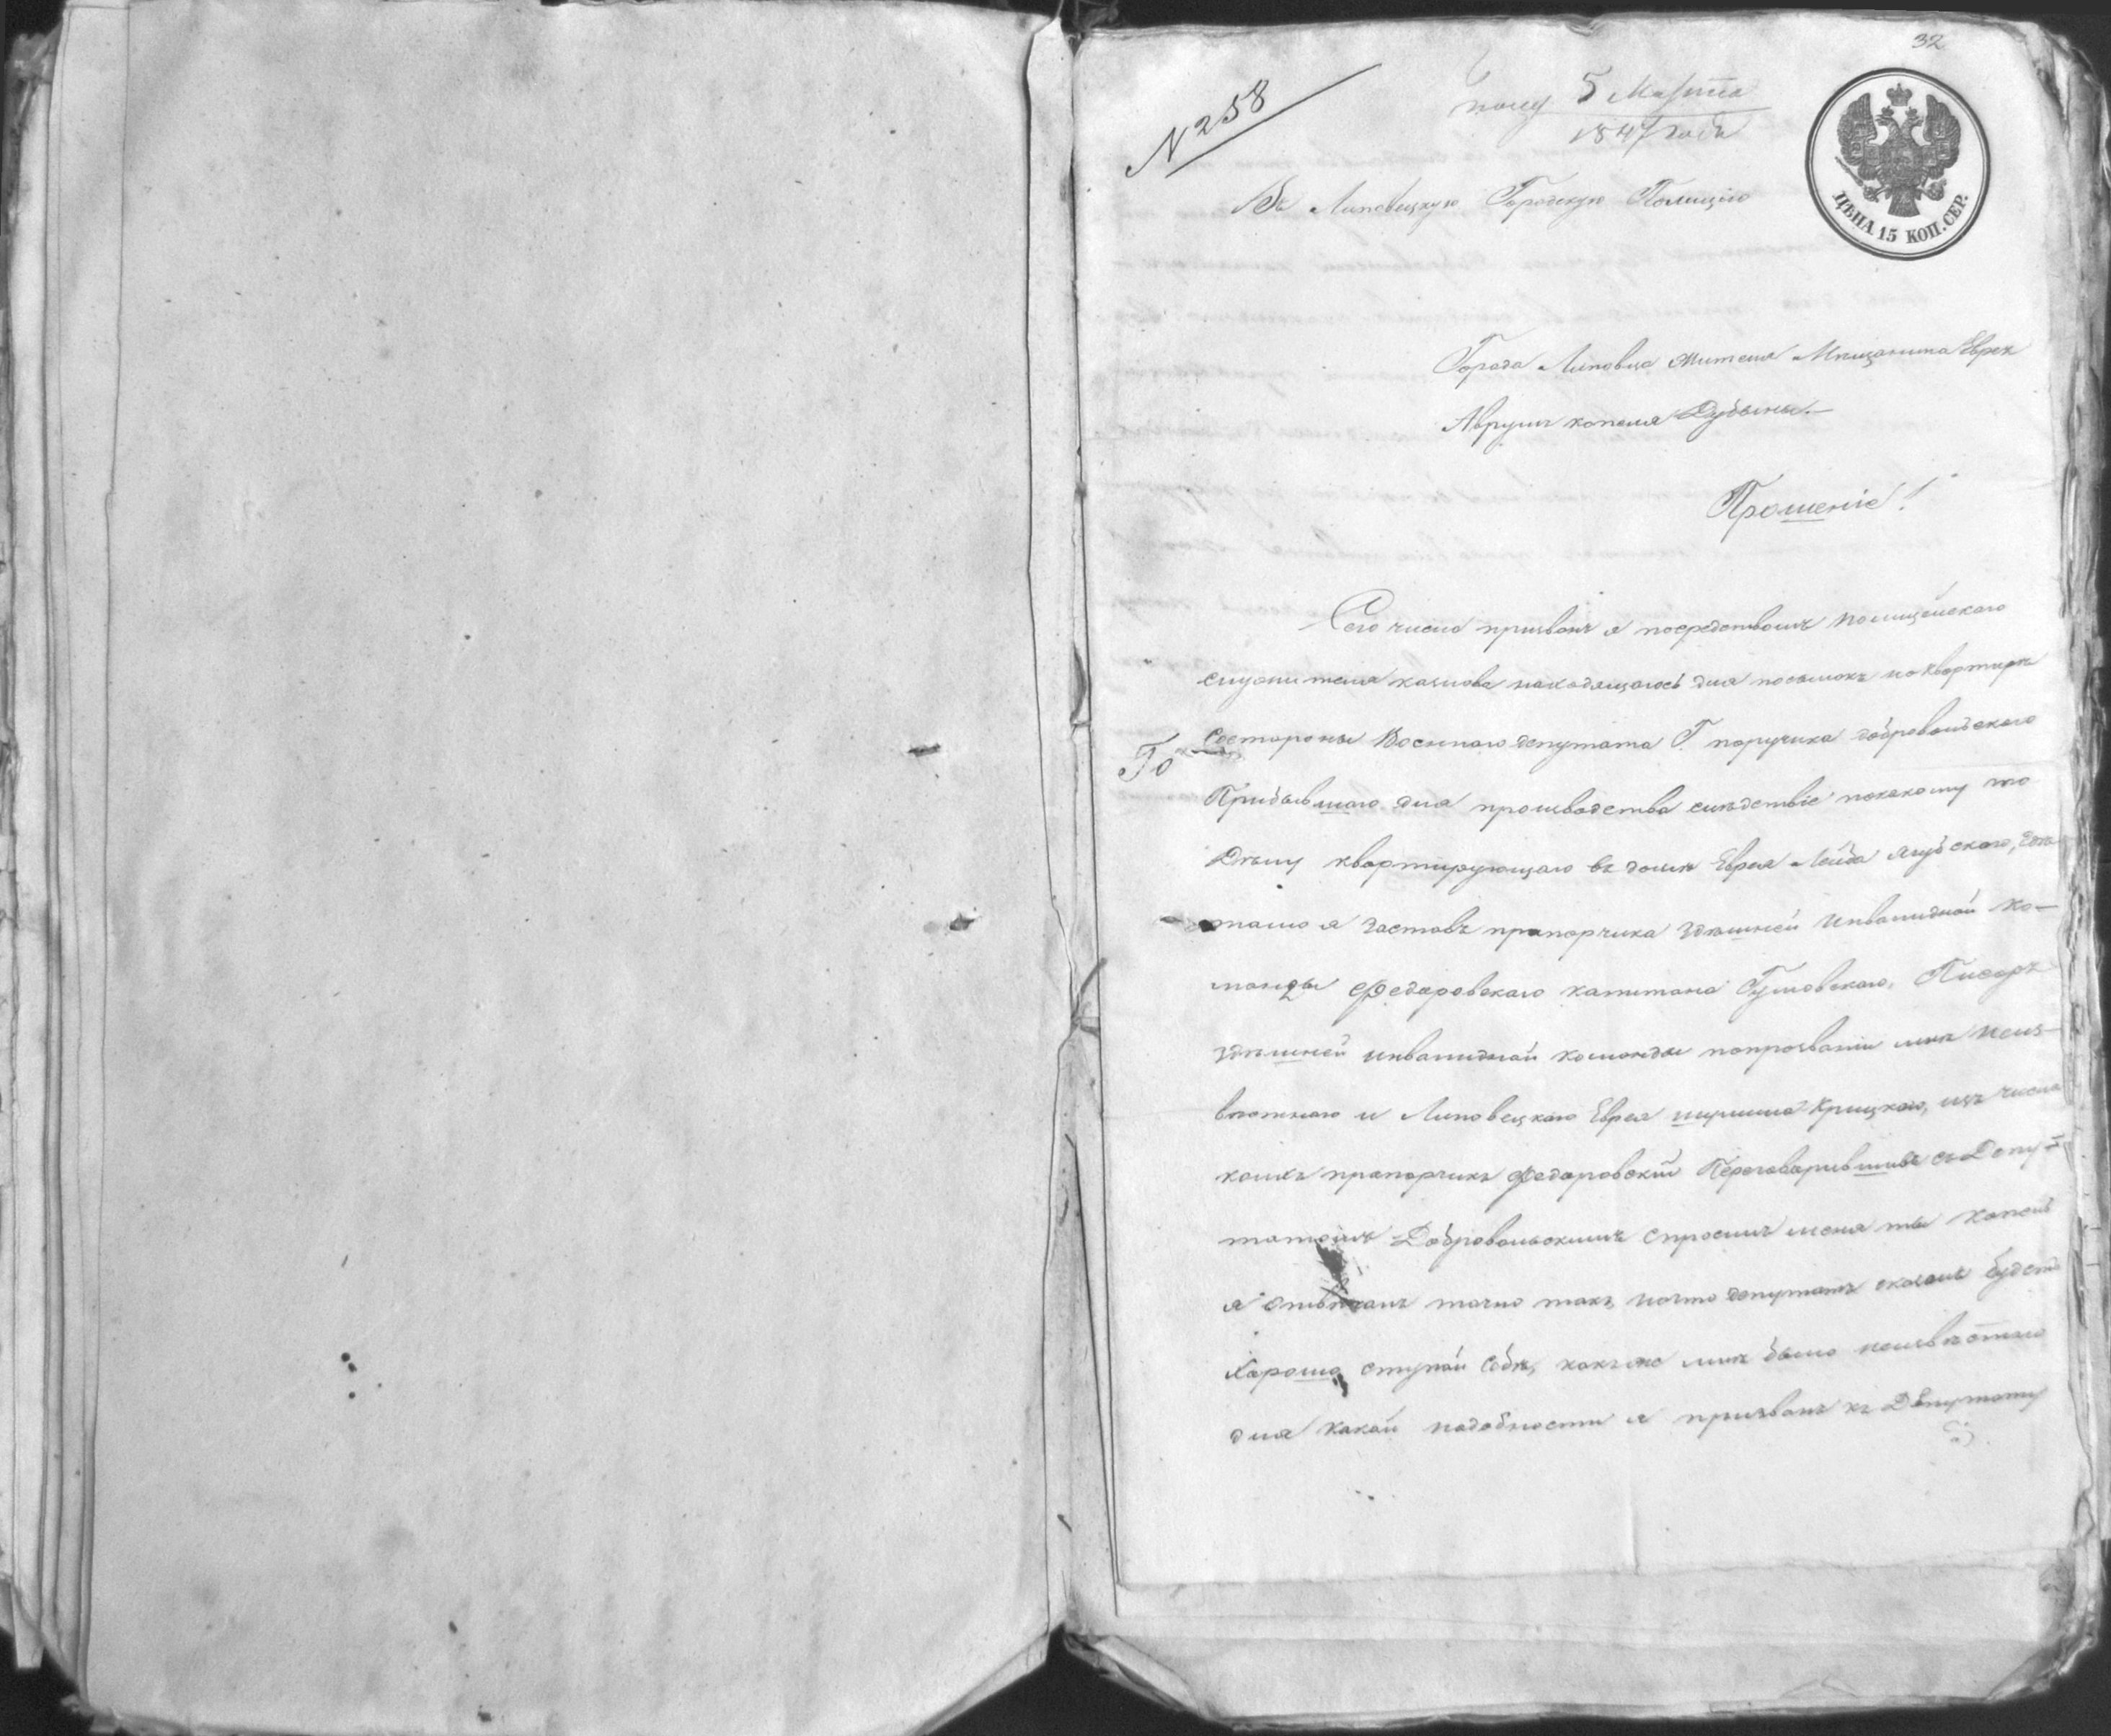 32
N 258
полу 5 Марта
1847 года
ЦѢНА 15 КОП. СЕР.
Въ Липовецкую Городскую Полицію
Города Липовца жителя Мѣщанина Еврея
Аврумъ копеля Дубыны.—
Прошеніе!
Сего числа призванъ я посредствомъ полицейскаго
служителя находящагось для посылокъ по квартирѣ
состороны Военнаго депутата Г. поручика добровольскаго
То
Прибывшаго для производства слѣдствіе покакому то
Дѣлу квартирующаго въ домѣ Еврея Лейба
тамо я засталъ прапорчика здѣшней инвалидной ко-
манды Федаровскаго капитана Писаръ
здѣшней инвалидной команды попрозванію мнѣ неиз-
вѣстнаго и Липовецкаго Еврея Крицкаго, изъ числа
коихъ прапорчикъ Федаровскій Переговарившивъ съ Депу-
татомъ Добровольскимъ спросилъ меня ты копель
я отвѣчалъ точно такъ, на что депутатъ сказалъ будетъ
Хорошо, ступай себѣ, какъ же мнѣ было неизвѣстно
для какой надобности я призванъ къ Депутату